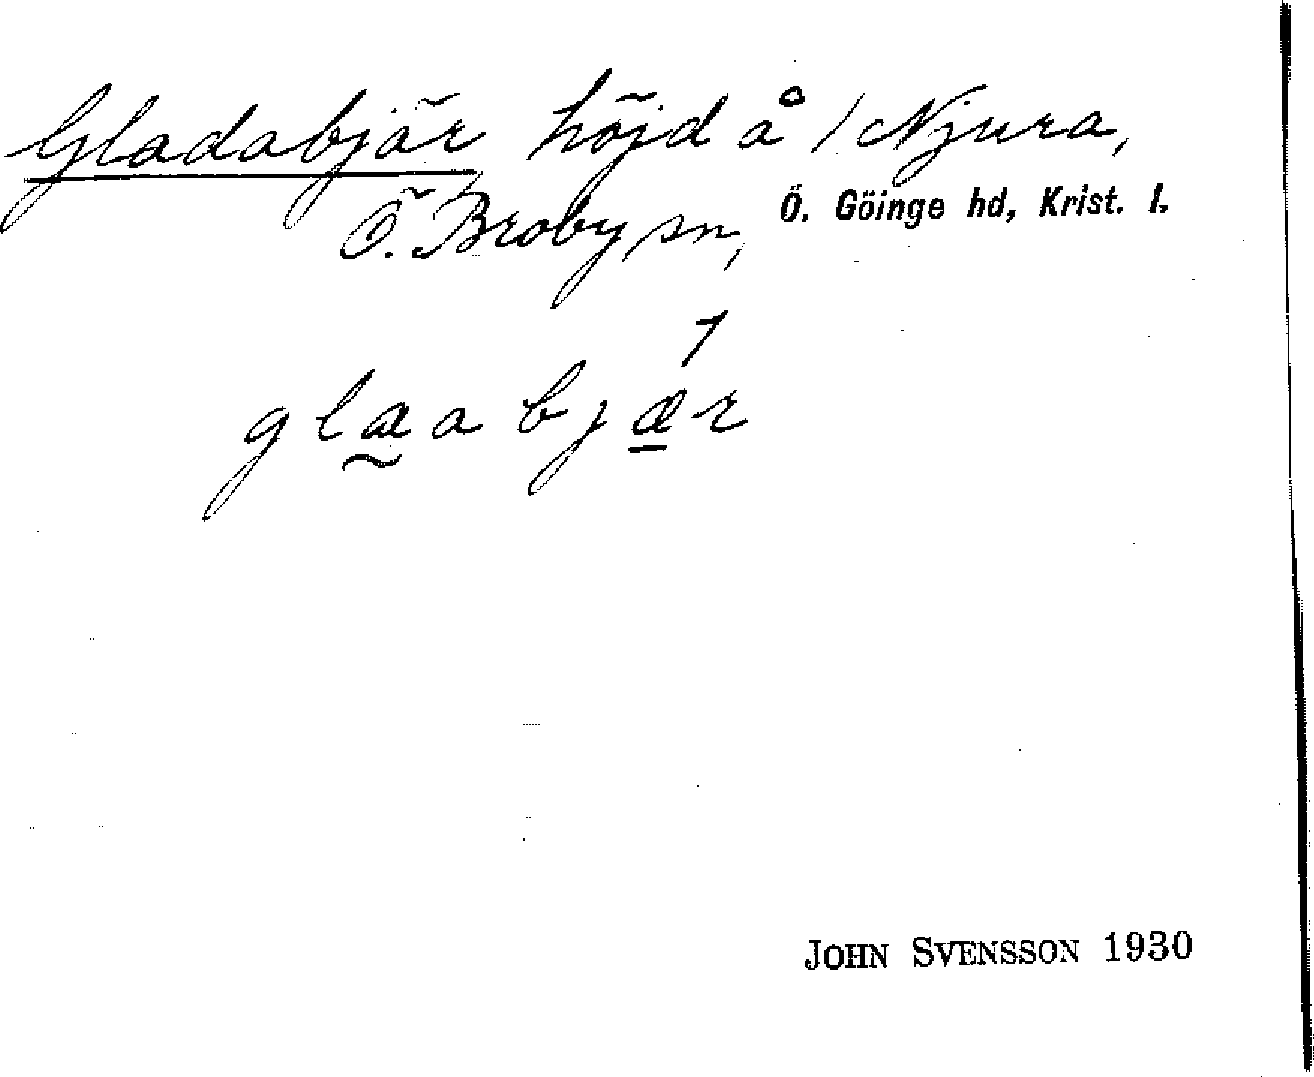 Gladabjär höjd å /Njura,
Ö. Broby sn, Ö. Göinge hd, Krist. l.
1
glæa bjær
JOHN SVENSSON 1930